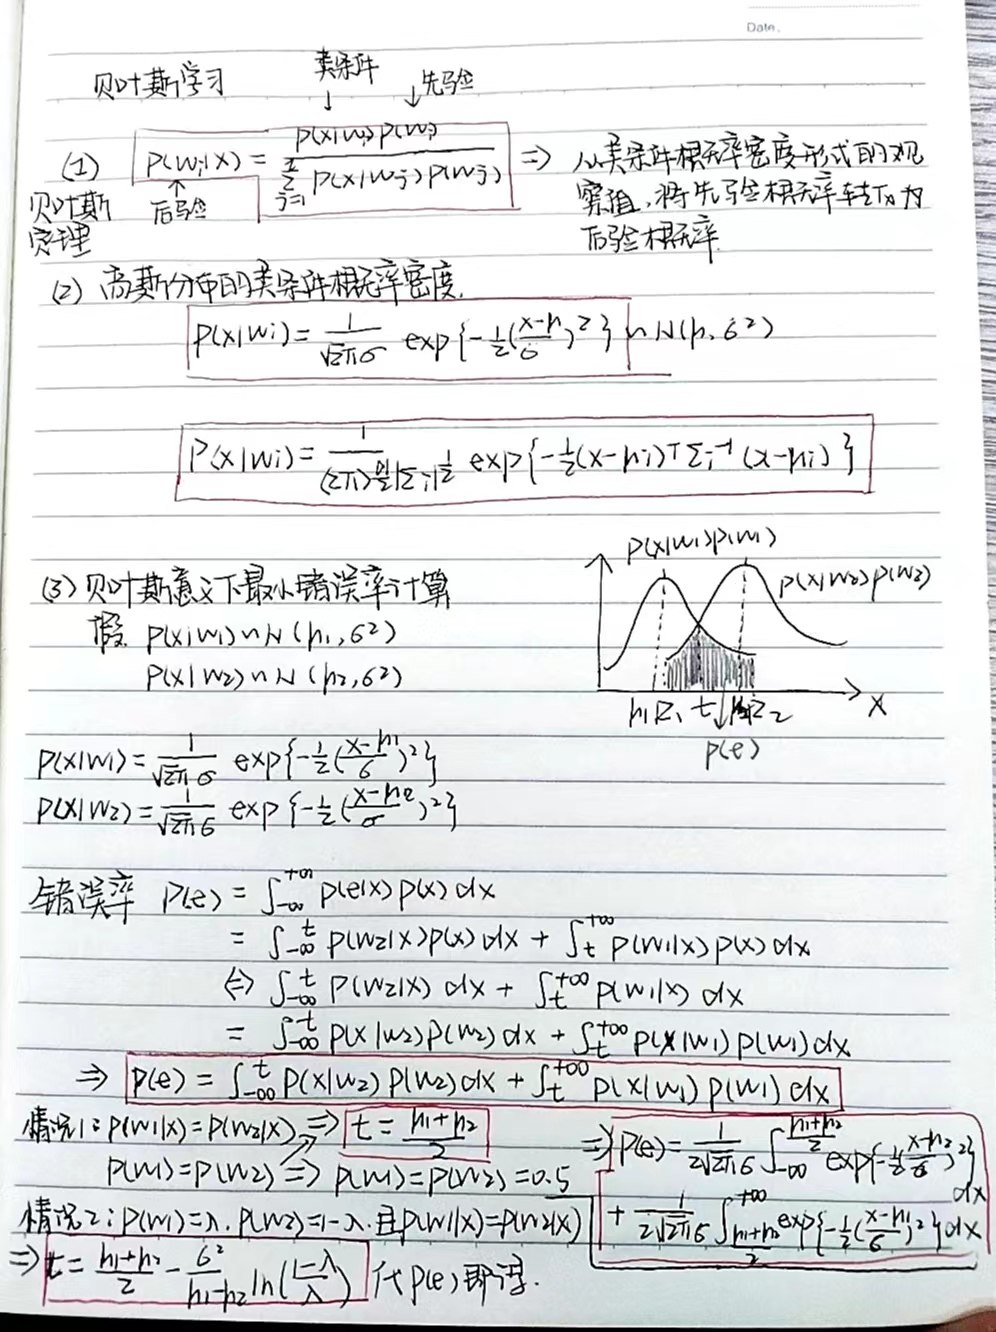 Date.
贝叶斯学习 类条件 ↓ 先验 ↓
(1) P(wi|x) = P(x|wi)P(wi) / Σ_{j=1}^{2} P(x|wj)P(wj) ⇒ 从类条件概率密度形式的观
贝叶斯 ↑后验 察值,将先验概率转化为
定理 后验概率
(2) 高斯分布的类条件概率密度.
P(x|wi) = 1/(√2π σ) exp{-1/2((x-μ)/σ)²} ~ N(μ, σ²)
P(x|wi) = 1/((2π)^{n/2}|Σi|^{1/2}) exp{-1/2(x-μi)ᵀΣi⁻¹(x-μi)}
(3) 贝叶斯意义下最小错误率计算
假 P(x|w1) ~ N(μ1, σ²)
P(x|w2) ~ N(μ2, σ²)
P(x|w1)P(w1)
P(x|w2)P(w2)
μ1 R1 t μ2 R2 x
P(e)
P(x|w1) = 1/(√2π σ) exp{-1/2((x-μ1)/σ)²}
P(x|w2) = 1/(√2π σ) exp{-1/2((x-μ2)/σ)²}
错误率 P(e) = ∫_{-∞}^{+∞} P(e|x)P(x)dx
= ∫_{-∞}^{t} P(w2|x)P(x)dx + ∫_{t}^{+∞} P(w1|x)P(x)dx
⇔ ∫_{-∞}^{t} P(w2|x)dx + ∫_{t}^{+∞} P(w1|x)dx
= ∫_{-∞}^{t} P(x|w2)P(w2)dx + ∫_{t}^{+∞} P(x|w1)P(w1)dx
⇒ P(e) = ∫_{-∞}^{t} P(x|w2)P(w2)dx + ∫_{t}^{+∞} P(x|w1)P(w1)dx
情况1: P(w1|x)=P(w2|x) ⇒ t = (μ1+μ2)/2
P(w1)=P(w2) ⇒ P(w1)=P(w2)=0.5
⇒ P(e) = 1/(2√2π σ) ∫_{-∞}^{(μ1+μ2)/2} exp{-1/2((x-μ2)/σ)²}dx
+ 1/(2√2π σ) ∫_{(μ1+μ2)/2}^{+∞} exp{-1/2((x-μ1)/σ)²}dx
情况2: P(w1)=λ. P(w2)=1-λ. 且P(w1|x)=P(w2|x)
⇒ t = (μ1+μ2)/2 - σ²/(μ1-μ2) ln((1-λ)/λ) 代P(e)即得.